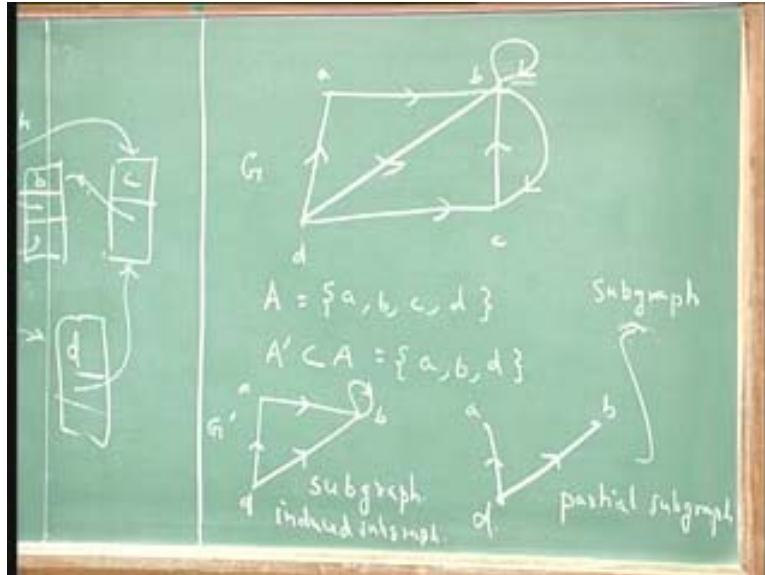 h
b
c
d
a
b
G
d
c
A = {a, b, c, d}
A' ⊂ A = {a, b, d}
Subgraph
a
b
G'
d
subgraph
induced subgraph.
a
b
d.
partial subgraph